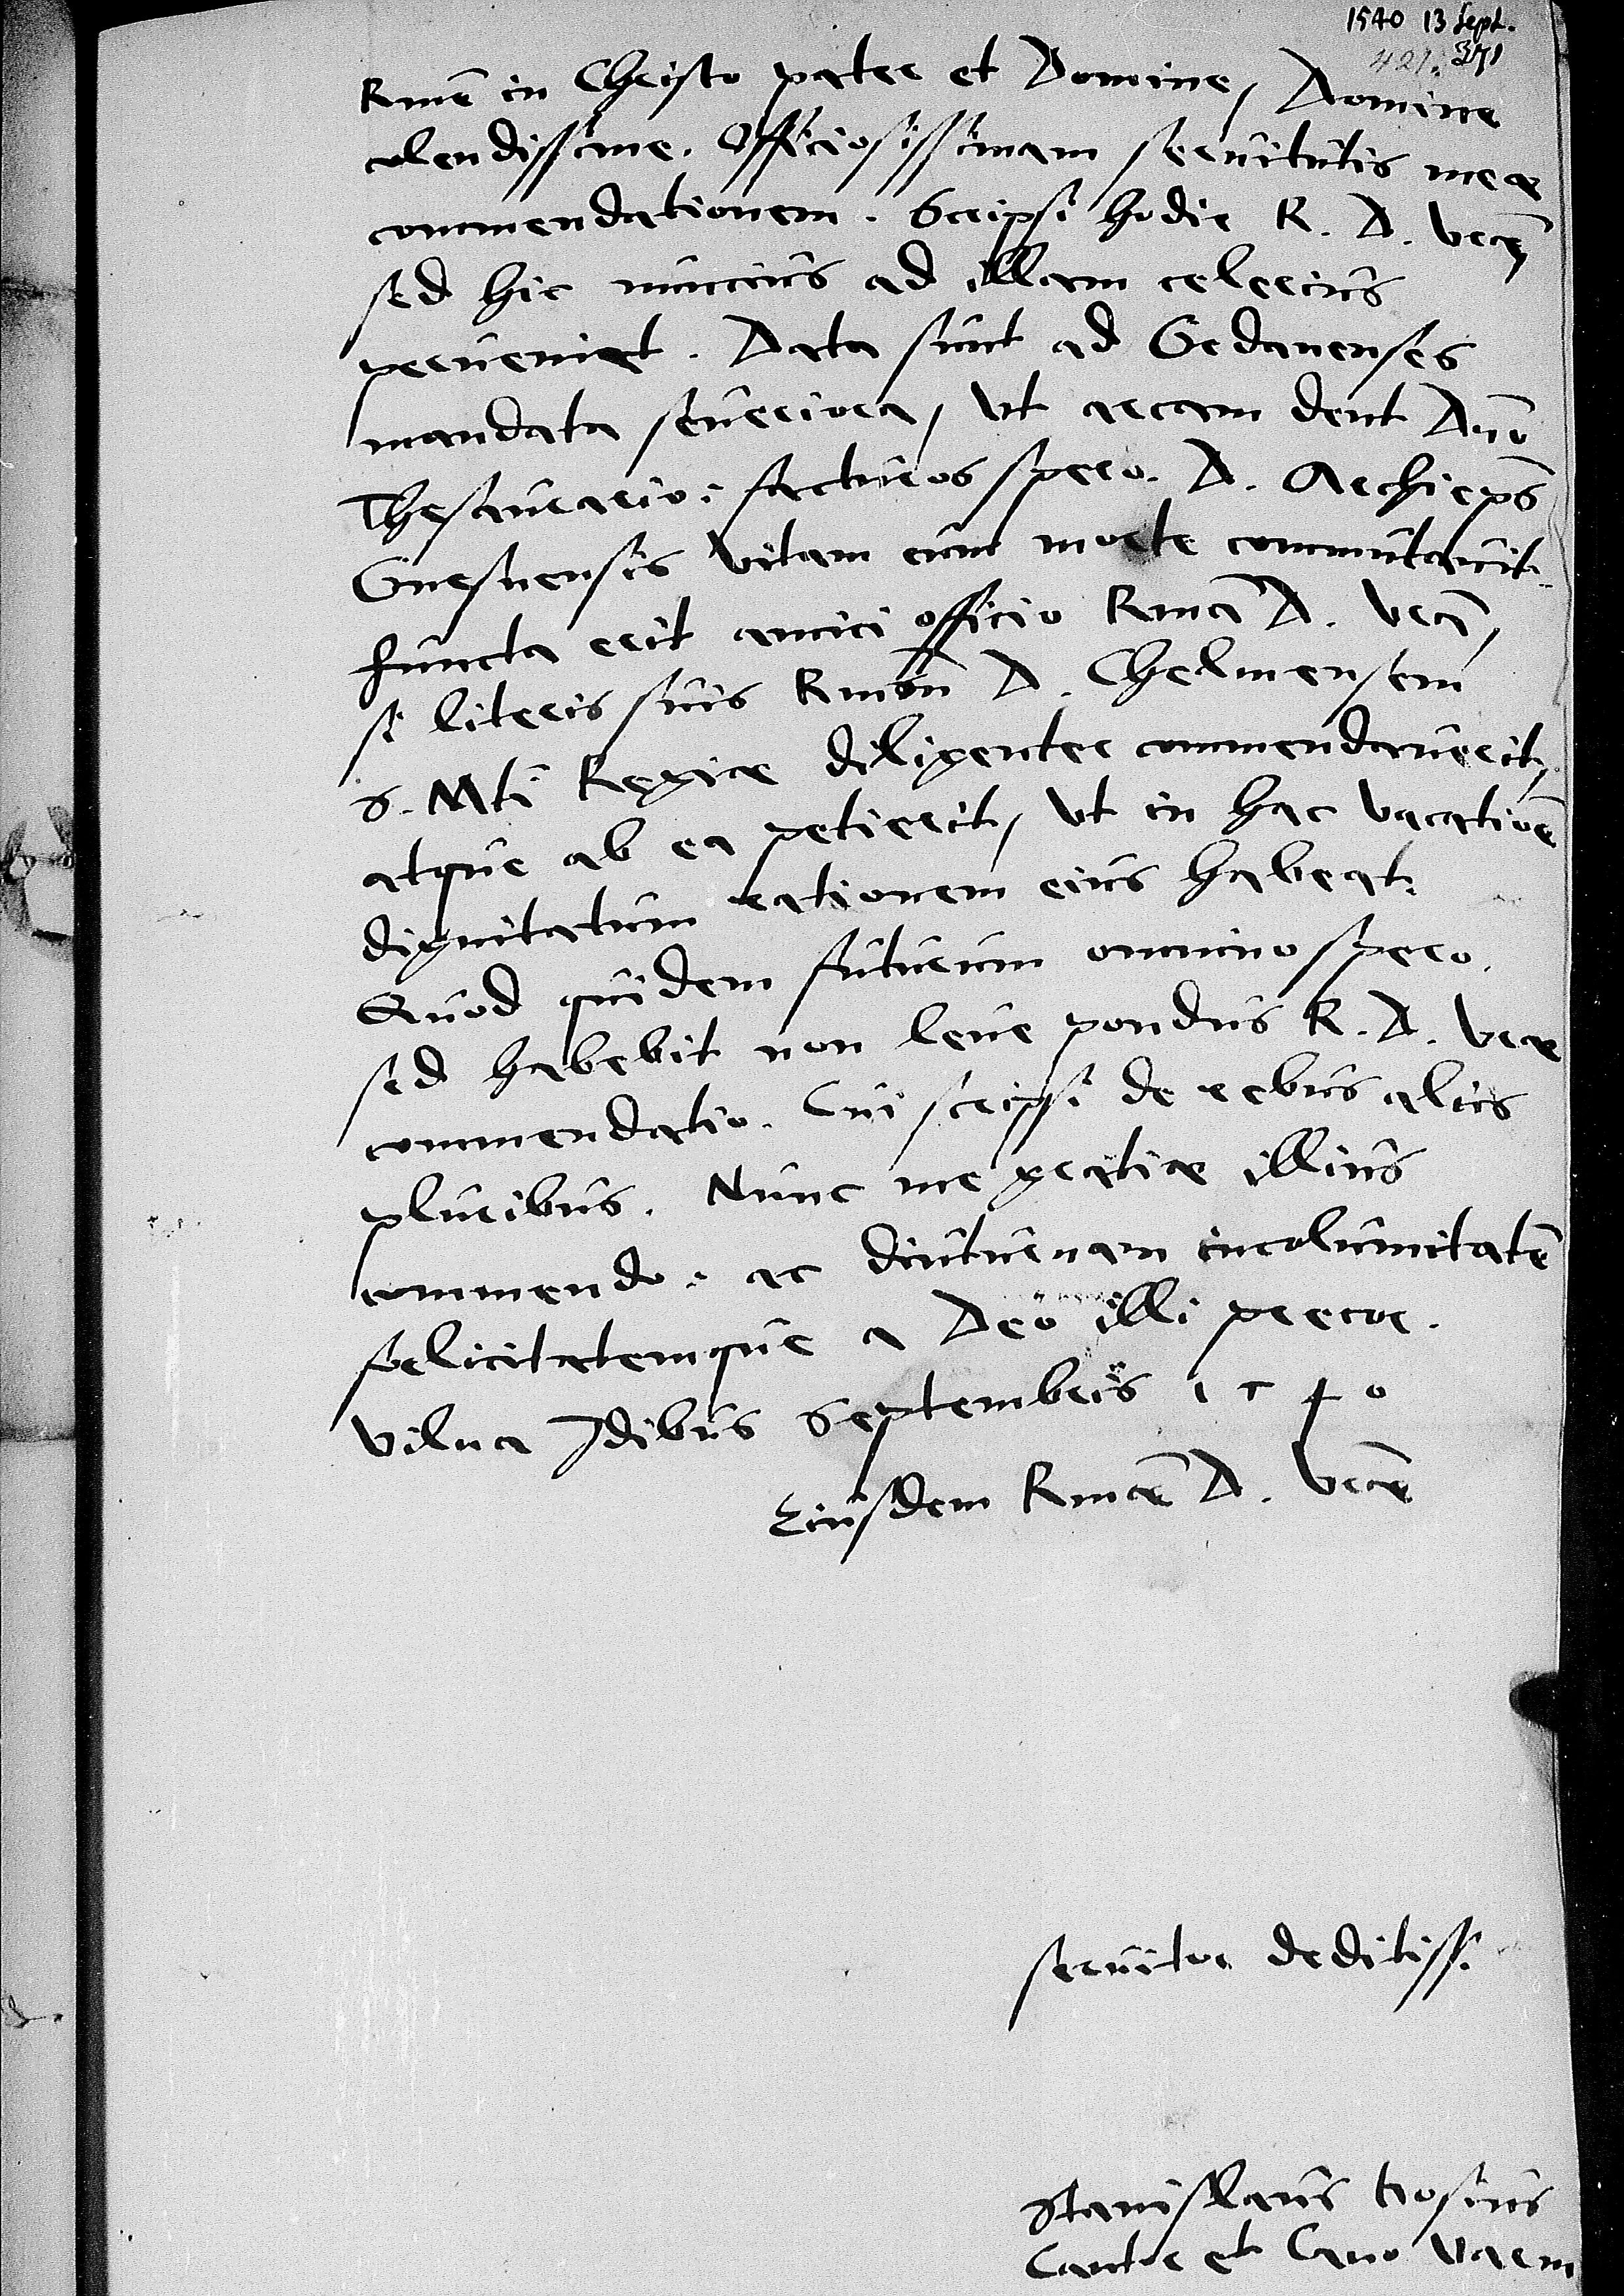 1540 13 Sept.
421. 371
Rme in Christo pater et Domine, Domine
colendissime. Officiosissimam servitutis meæ
commendationem. Scripsi hodie R. D. Vrę
sed hic nuncius ad illam celerius
perveniet. Data sunt ad Gedanenses
mandata severiora, ut arcam dent Dno
Thesaurario: facturos spero. D. Archieps
Gnesnensis vitam cum morte commutavit.
functa erit amici officio Rma D. Vra,
si literis suis Rmũ D. Chelmensem
S. Mti Regiæ diligenter commendaverit,
atque ab ea petierit, ut in hac vacatiõe
dignitatum rationem eius habeat.
Quod quidem futurum omnino spero.
sed habebit non leve pondus R. D. Vræ
commendatio. Cui scripsi de rebus aliis
pluribus. Nunc me gratiæ illius
commendo: ac diuturnam incolumitatẽ
felicitatemque a Deo illi precor.
Vilna Idibus Septembris 1540
Eiusdem Rmẽ D. Vrẽ
servitor deditiss.
Stanislaus Hosius
Cantor et Cano Varm